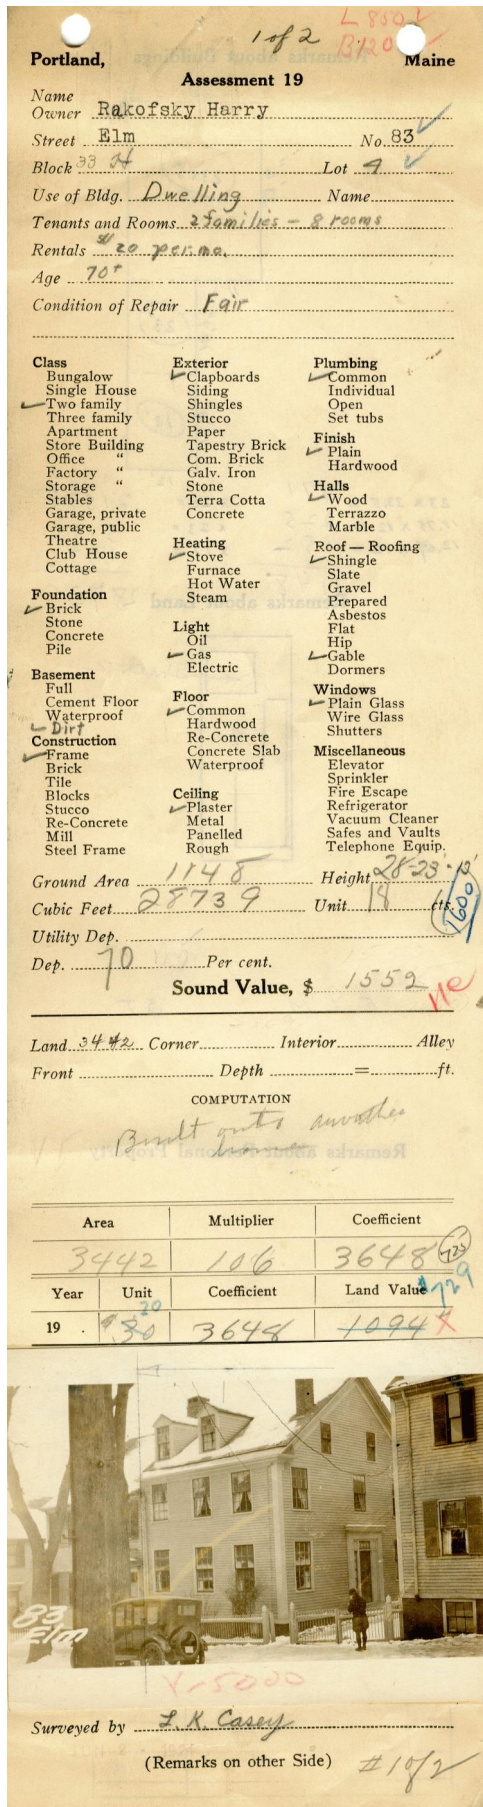 1 of 2
L 850
B 120
Portland, Maine
Assessment 19
Name
Owner Rakofsky Harry
Street Elm No. 83
Block 33 H Lot 9
Use of Bldg. Dwelling Name
Tenants and Rooms 2 families - 8 rooms
Rentals $20 per mo.
Age 70+
Condition of Repair Fair
Class
Bungalow
Single House
Two family
Three family
Apartment
Store Building
Office "
Factory "
Storage "
Stables
Garage, private
Garage, public
Theatre
Club House
Cottage
Foundation
Brick
Stone
Concrete
Pile
Basement
Full
Cement Floor
Waterproof
Dirt
Construction
Frame
Brick
Tile
Blocks
Stucco
Re-Concrete
Mill
Steel Frame
Exterior
Clapboards
Siding
Shingles
Stucco
Paper
Tapestry Brick
Com. Brick
Galv. Iron
Stone
Terra Cotta
Concrete
Heating
Stove
Furnace
Hot Water
Steam
Light
Oil
Gas
Electric
Floor
Common
Hardwood
Re-Concrete
Concrete Slab
Waterproof
Ceiling
Plaster
Metal
Panelled
Rough
Plumbing
Common
Individual
Open
Set tubs
Finish
Plain
Hardwood
Halls
Wood
Terrazzo
Marble
Roof — Roofing
Shingle
Slate
Gravel
Prepared
Asbestos
Flat
Hip
Gable
Dormers
Windows
Plain Glass
Wire Glass
Shutters
Miscellaneous
Elevator
Sprinkler
Fire Escape
Refrigerator
Vacuum Cleaner
Safes and Vaults
Telephone Equip.
Ground Area 1148 Height 28-23'-12'
Cubic Feet 28739 Unit 18 cts.
1600
Utility Dep.
Dep. 70 Per cent.
Sound Value, $ 1552
Land 3442 Corner Interior Alley
Front Depth = ft.
COMPUTATION
Built onto another
house
Area Multiplier Coefficient
3442 106 3648 725
$729
Year Unit Coefficient Land Value
20
19 . $.30 3648 1094
83
Elm
V-5000
Surveyed by L. K. Casey
(Remarks on other Side) #1 of 2